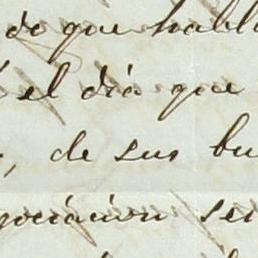 do que habl
el dia que
, de sus bu
gociacion se